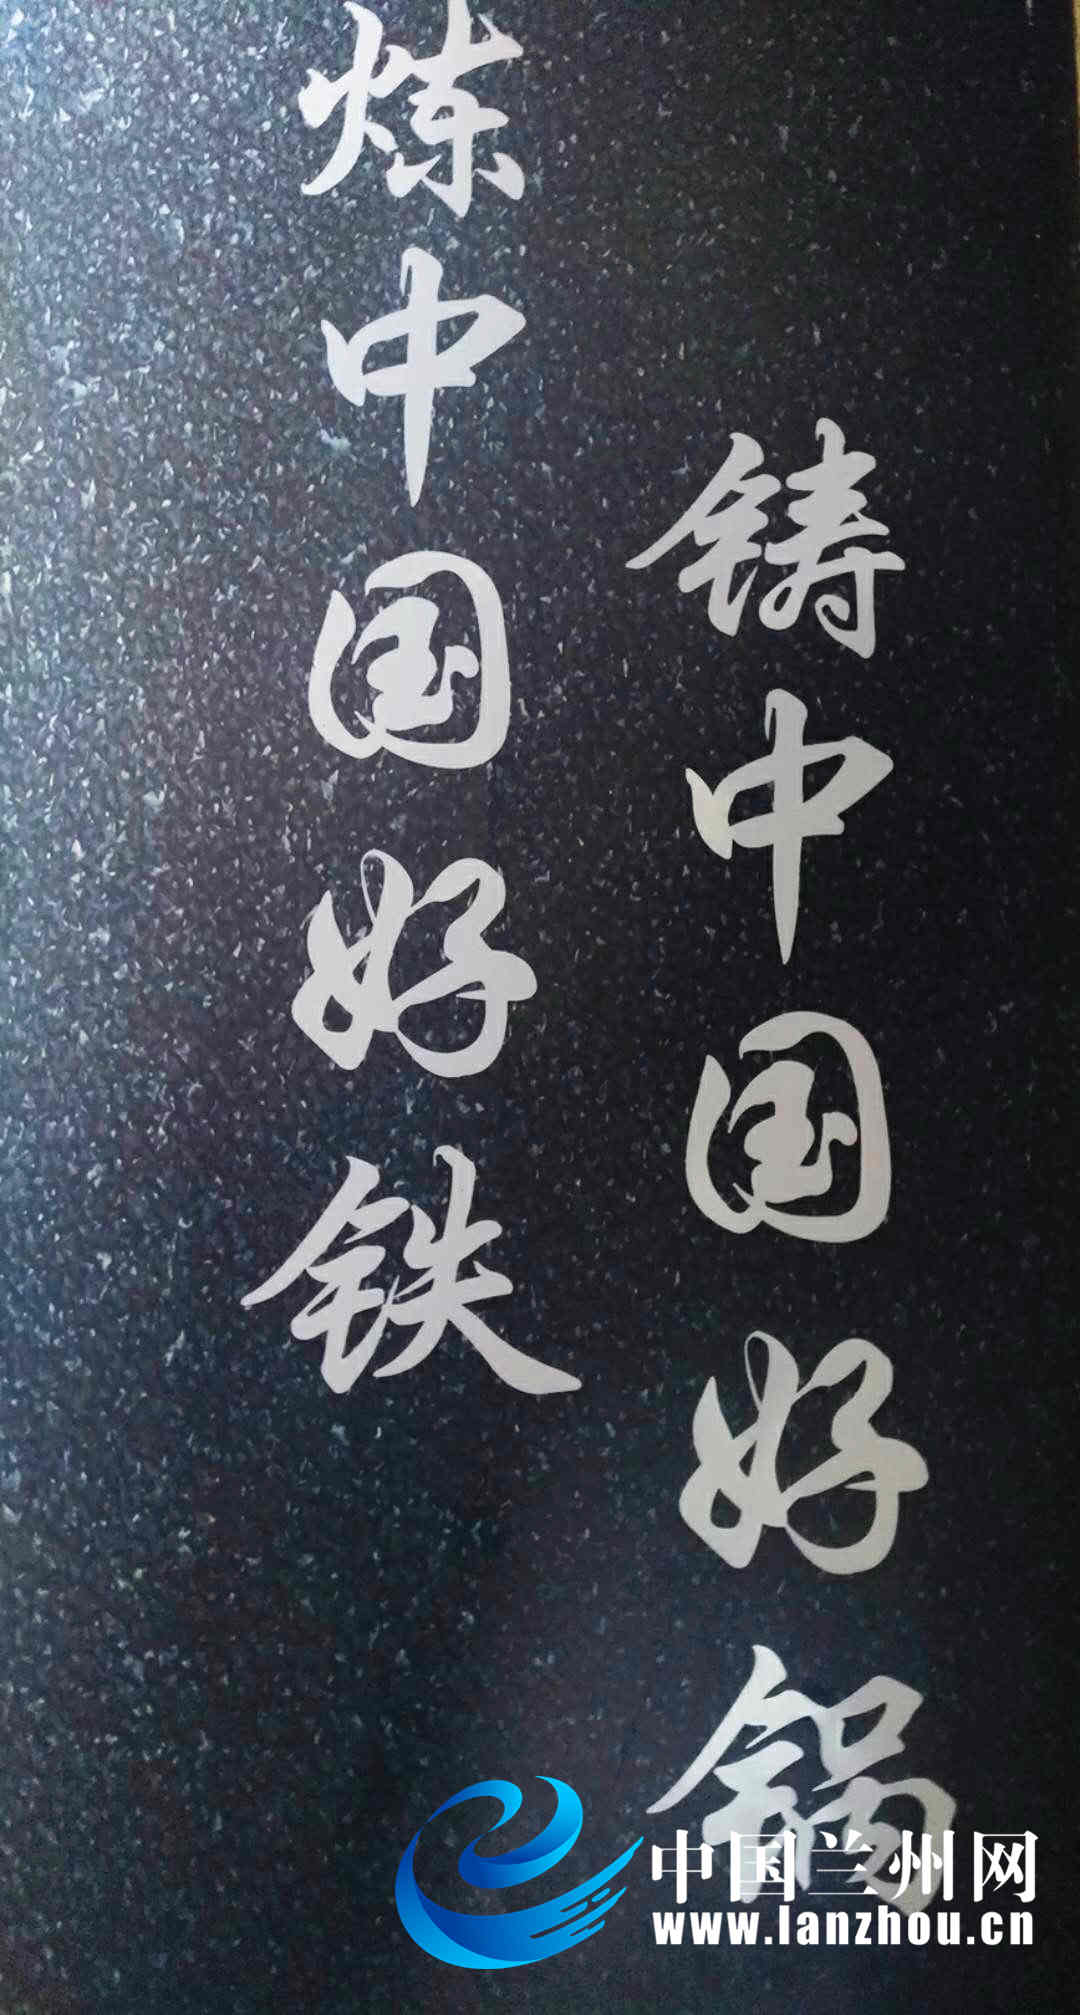 炼中国好铁
铸中国好锅
中国兰州网
www.lanzhou.cn